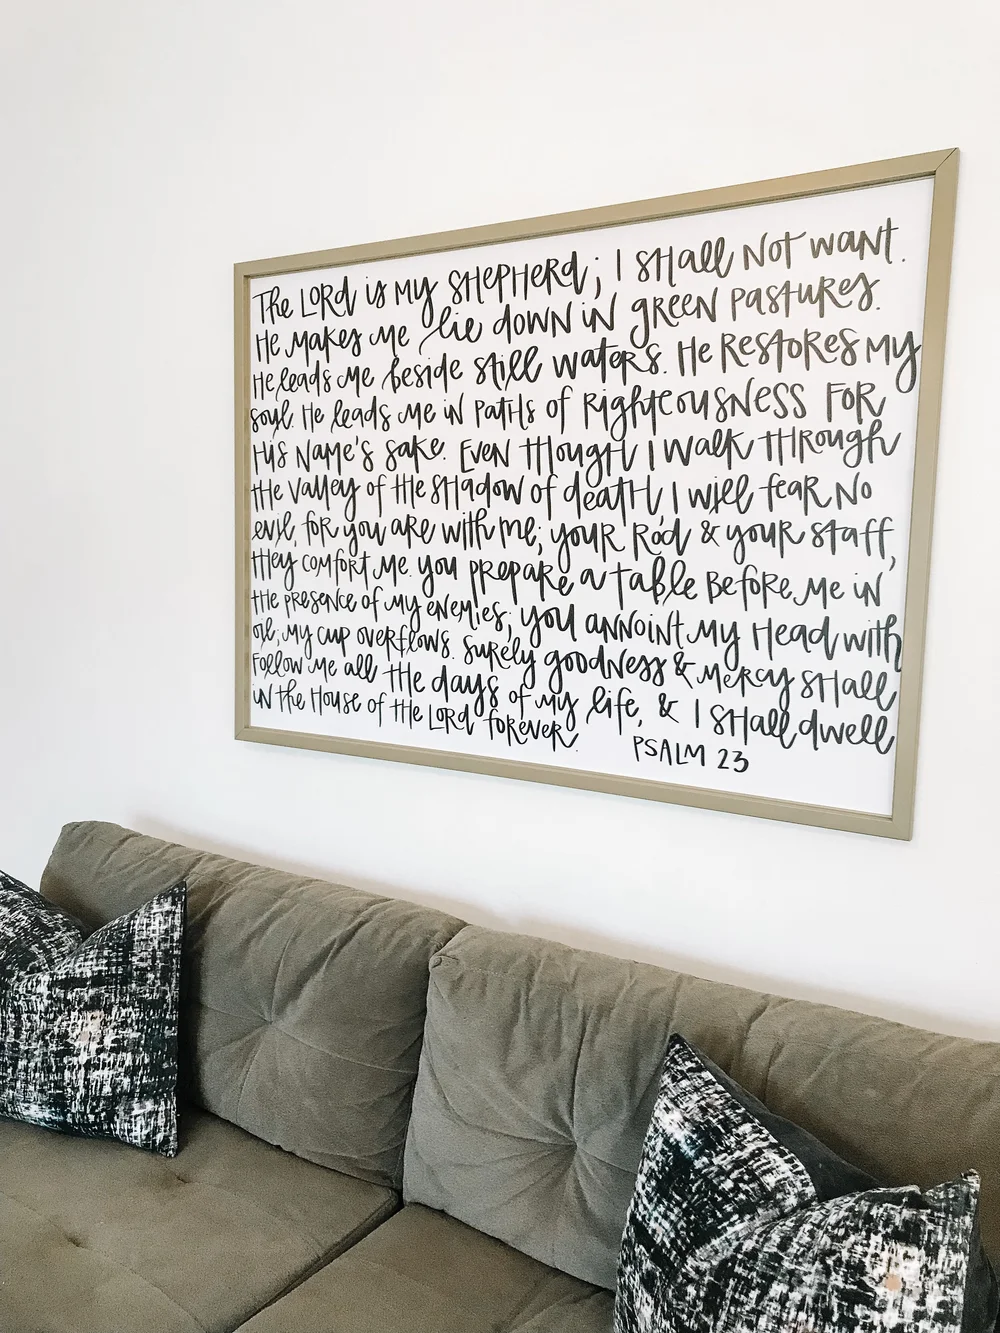 The LORD is my SHEPHERD; I SHall Not want.
He makes me lie down in green pastures.
He leads me beside still waters. He Restores my
soul. He leads me in paths of Righteousness FOR
His Name's sake. Even though I walk through
the valley of the shadow of death, I will fear No
evil, for you are with me; your Rod & your staff,
they comfort me. you prepare a table before me in
the presence of my enemies; you annoint my Head with
oil; my cup overflows. Surely goodness & mercy shall
Follow me all the days of my life, & I shall dwell
in the House of the LORD forever.
PSALM 23